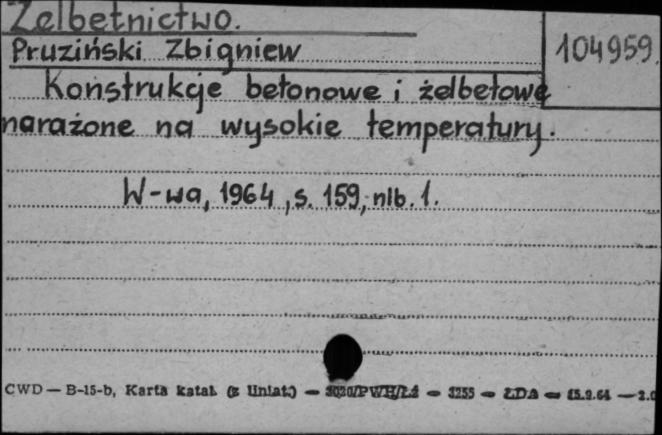 Żelbetnictwo.
104959.
Pruziński Zbigniew
Konstrukcje betonowe i żelbetowe
narażone na wysokie temperatury.
W-wa, 1964, s. 159, nlb. 1.
CWD — B-15-b, Karta katal. (z liniat.) — 3020/PWH/Łż — 3255 — ŁDA — 15.9.64 — 2.0